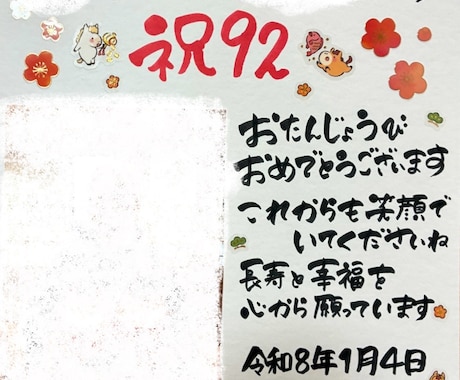 祝92
おたんじょうび
おめでとうございます
これからも笑顔で
いてくださいね
長寿と幸福を
心から願っています
令和8年1月4日